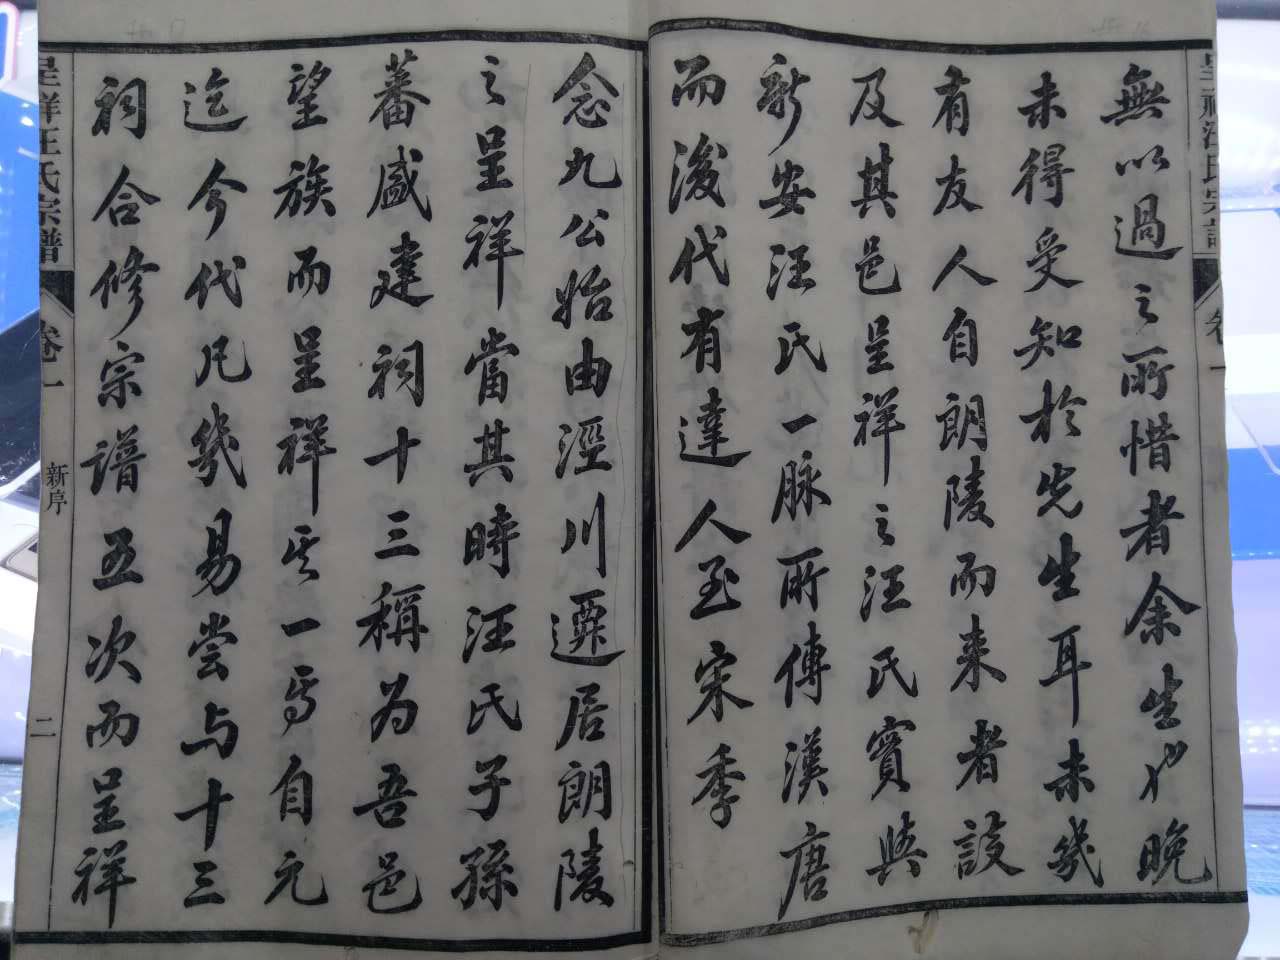 無以過之所惜者余生也晚
未得受知於先生耳未幾
有友人自朗陵而来者設
及其邑呈祥之汪氏實與
新安汪氏一脉所傳漢唐
而後代有達人至宋季
念九公始由涇川遷居朗陵
之呈祥當其時汪氏子孫
蕃盛建祠十三稱为吾邑
望族而呈祥其一焉自元
迄今代凡幾易嘗与十三
祠合修宗譜五次而呈祥
呈祥汪氏宗譜
卷一
新序
二